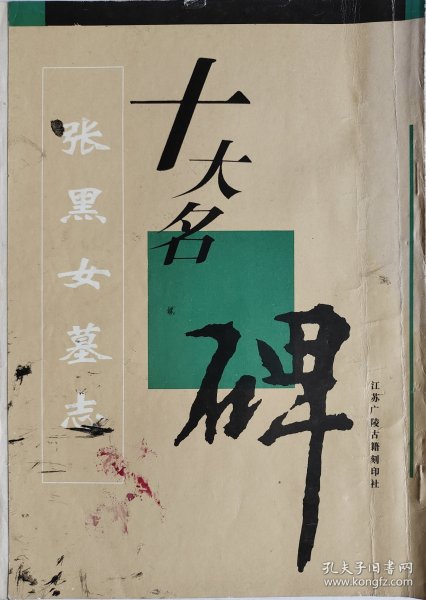 十大名碑
张黑女墓志
江苏广陵古籍刻印社
孔夫子旧书网
www.kongfz.com